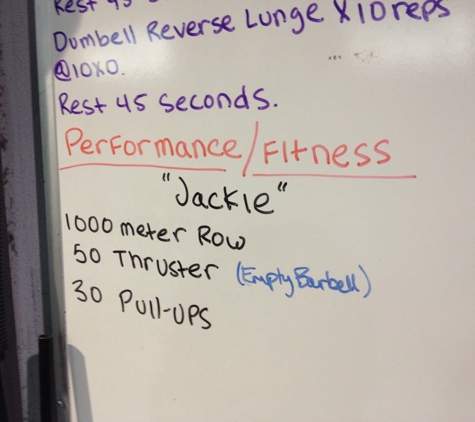 Rest 45
Dumbell Reverse Lunge X10 reps
@10X0.
Rest 45 seconds.
Performance/Fitness
"Jackie"
1000 meter Row
50 Thruster (Empty Barbell)
30 Pull-ups